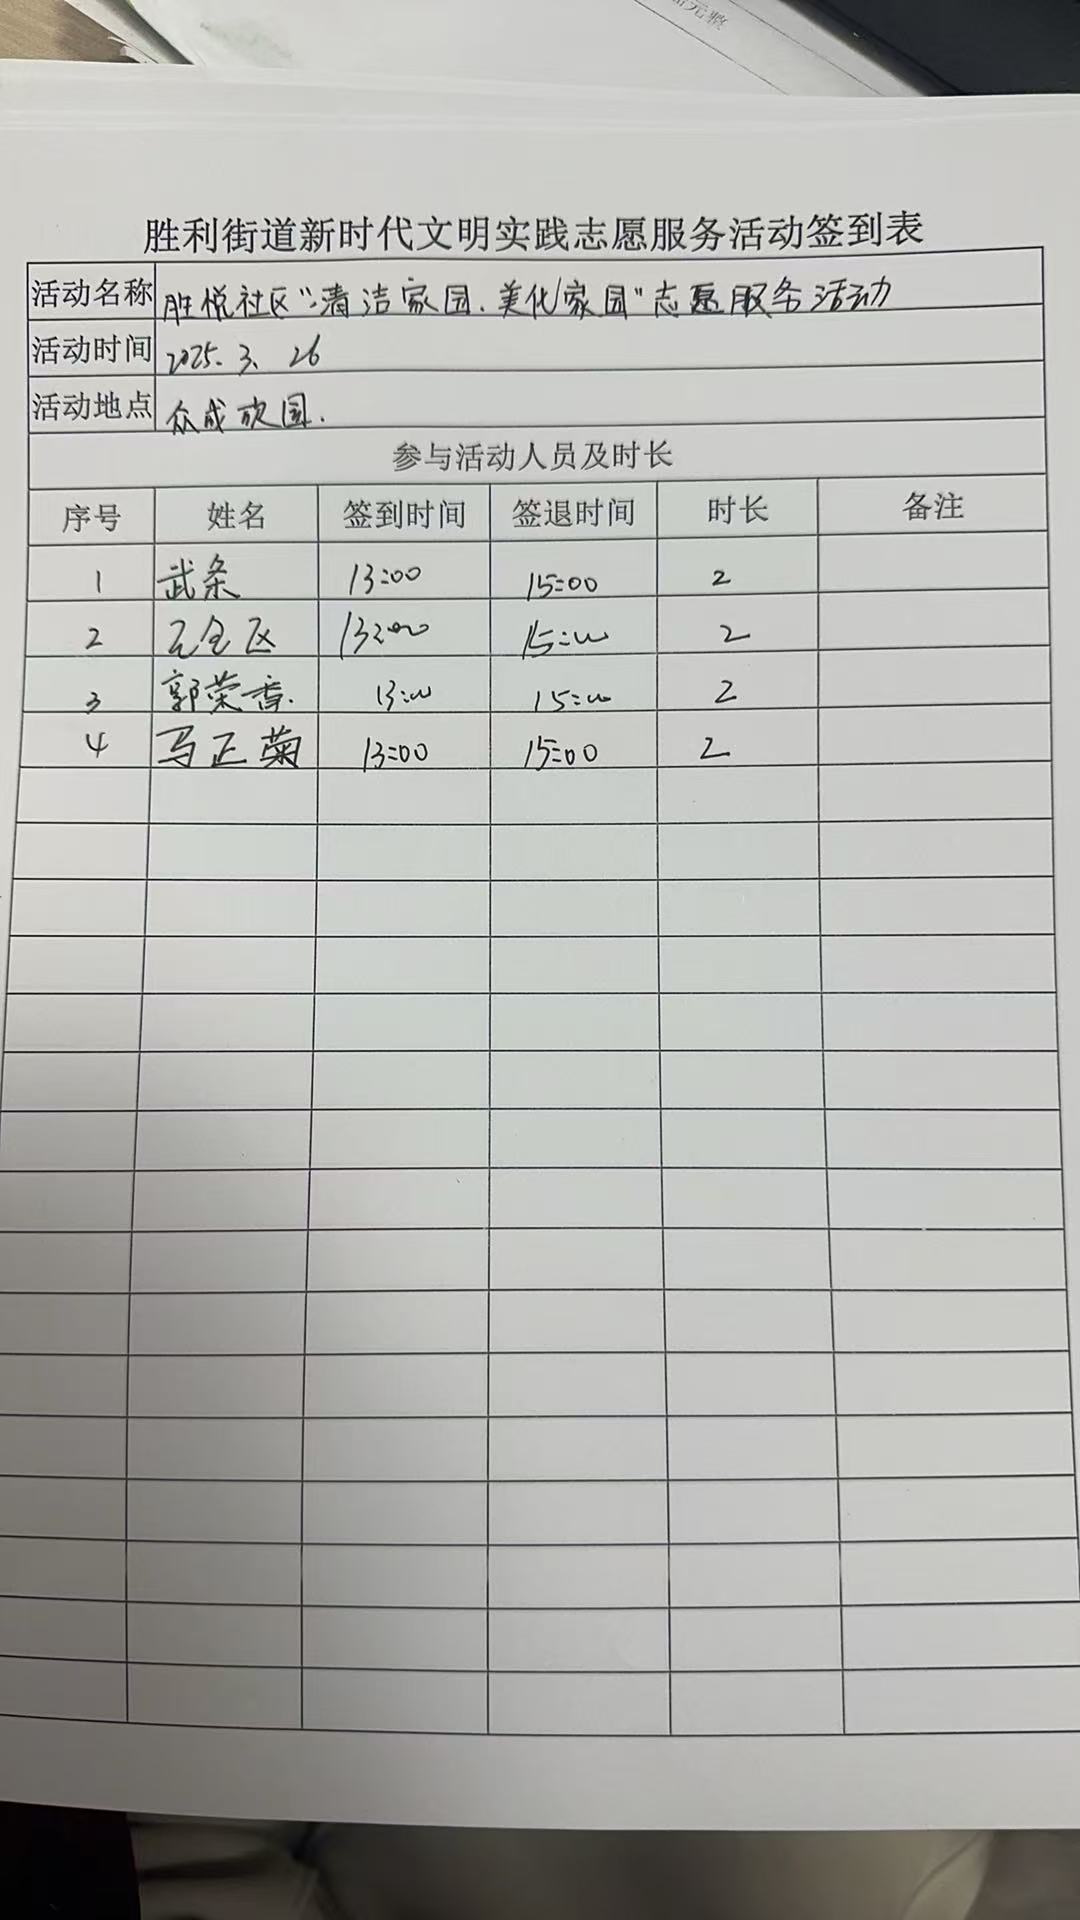 元整
胜利街道新时代文明实践志愿服务活动签到表
活动名称 胜悦社区"清洁家园.美化家园"志愿服务活动
活动时间 2025.3.26
活动地点 众成欣园.
参与活动人员及时长
序号 姓名 签到时间 签退时间 时长 备注
1 武条 13:00 15:00 2
2 13:00 15:00 2
3 郭荣香. 13:00 15:00 2
4 马正菊 13:00 15:00 2